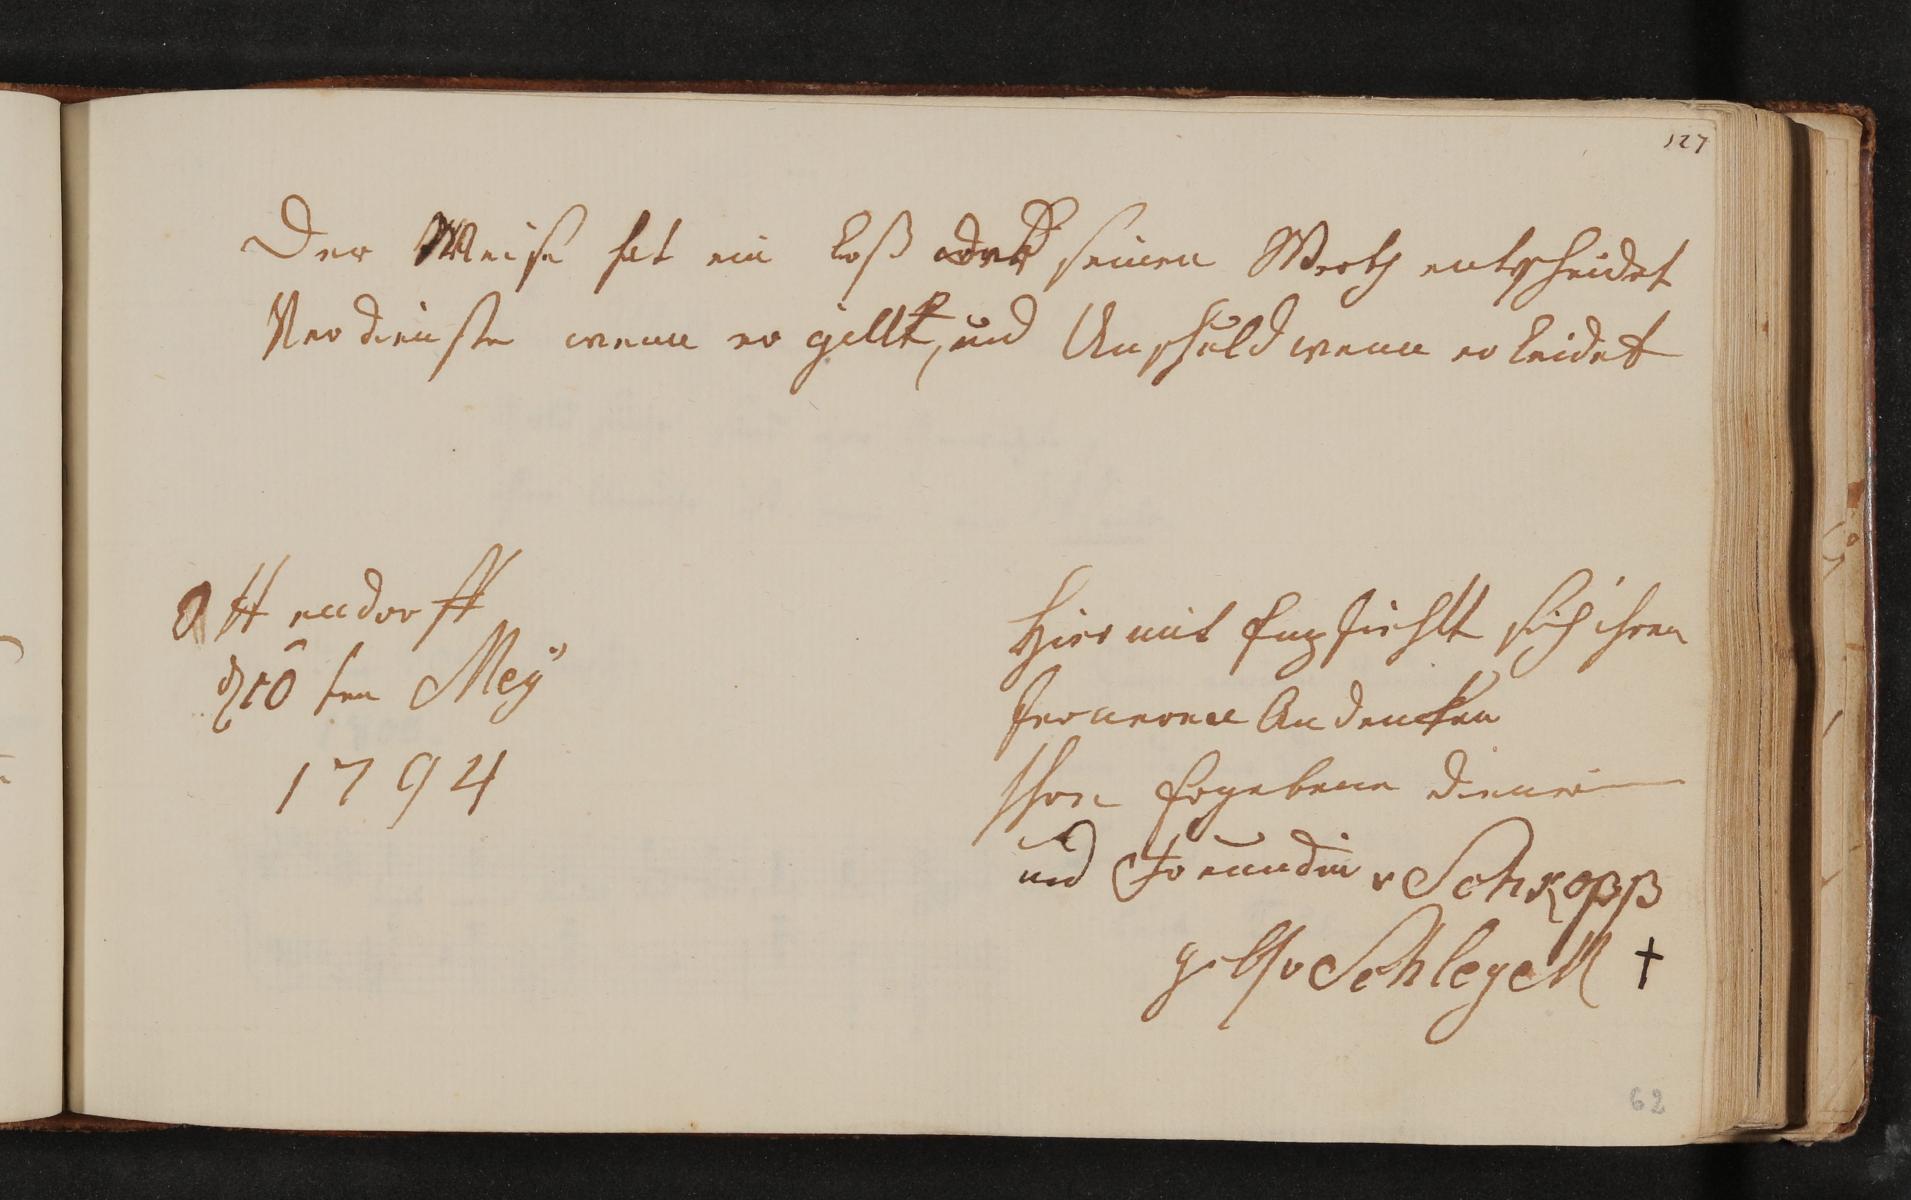 127
Der Weise hat ein Loß das seinen Werth entscheidet
Verdienste wenn er gillt, und Unschuld wenn er leidet
Ottendorff
d 10 ten Mey
1794
Hier mit Empfiehlt sich ihren
ferneren Andencken
Ihre Ergebene Dienerin
und Freundin v Schkopß
geb v Schlegell †
62